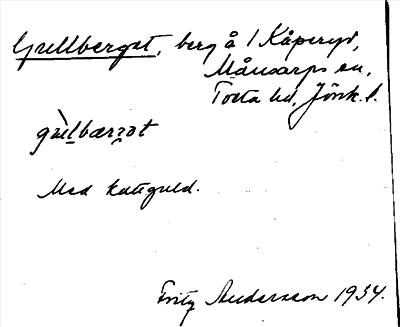 Gullberget, berg å 1 Kåperyd,
Månsarps sn,
Tveta hd, Jönk. l.
gùlbærjət
Med kattguld.
Fritz Andersson 1934.